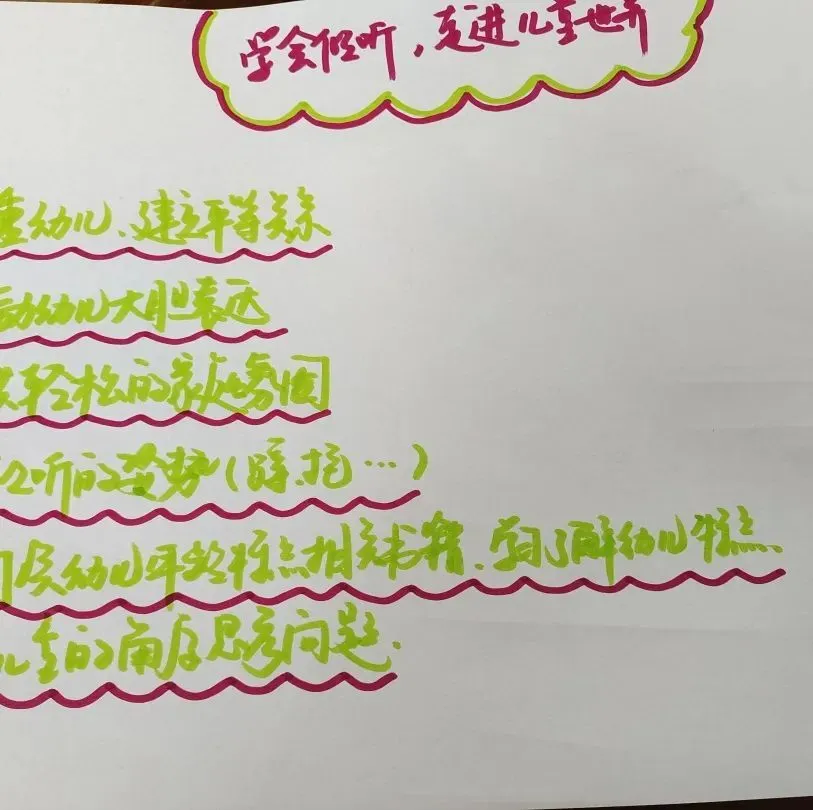 学会倾听,走进儿童世界
重幼儿、建立平等关系
动幼儿大胆表达
轻松的家庭氛围
听的姿势(蹲、抱…)
幼儿年龄特点相关书籍、学习了解幼儿特点、
儿童的角度思考问题.